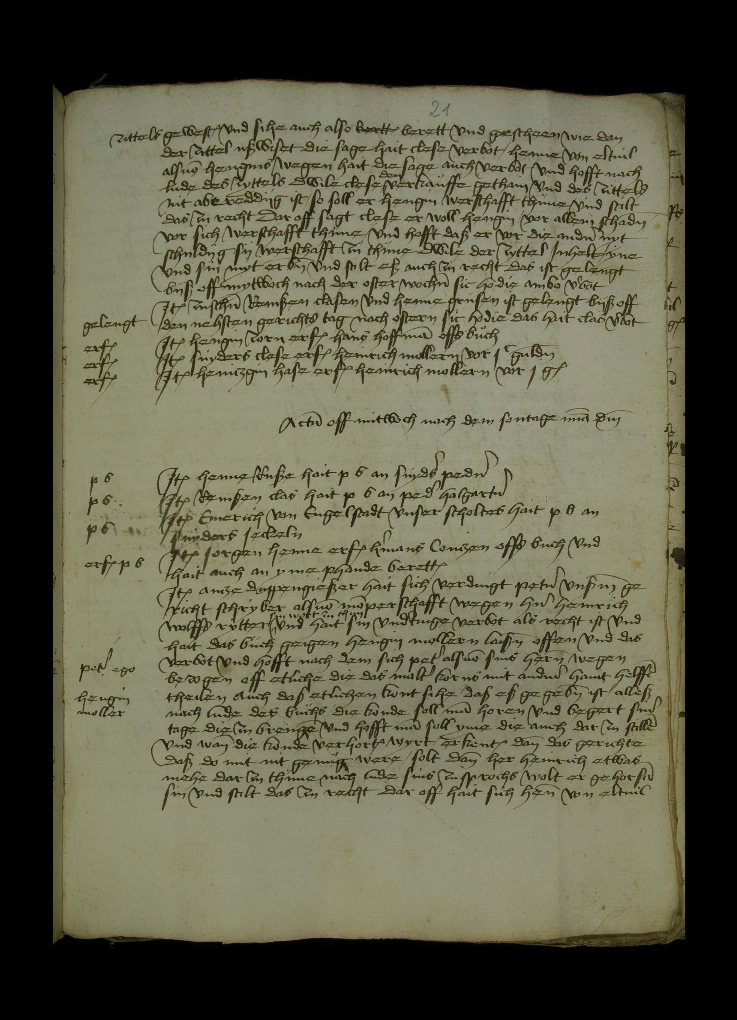 21
zittels gewest und sihe auch also berett und gescheen wie dan
der zittel ußwiset die sage hait clese verbot henne von eltuil
als hengins wegen hait die sage auch verbot und hofft nach
lude des zyttels dwile clese den verkauffe gethain und des zittels
nit abe reddig ist so soll er hengin werschafft thune und stilt
das zu recht Dar off sagt clese er woll hengin vor allem schadin
vor sich werschafft thune und hofft daß er vor die andn nyt
schuldig sin werschafft zu thune dwile der zyttel Inhelt
und sin nyt erbin und stilt eß auch zu recht das ist gelengt
biß off mytwoch nach der oster wochen sic hodie ambo
gelengt
Item zuschen Remßen clasen und henne grusen ist gelengt biß off
den nehsten gerichts tag nach ostern sic hodie das hait clas
erf
Item hengin zorn erf hans hoffman offs buch
erf
Item snyders clese erf heinrich mollern vor j guldn
erf
Item heintzgin hase erf heinrich mollern vor j g
Actum off mitwoch nach dem sontage
p b
Item henne Ruße hait p b an snyders pedern
p b
Item Remßen clas hait p b an peder holgartn
p b
Item Emerich von Engelstadt unser scholtes hait p b an
snyders Jeckeln
erf p b
Item sorgen henne erf hermans Contzen offs buch und
hait auch an yme phande berett
Item antze duppengießer hait sich verdingt petern unserm ge
richt schryber also momperschafft wegen hern heinrich
wolffs rytter und hait sin undtinge verbot als recht ist und
hait das buch geigen hengin mollern laißn offen und das
peter ego
verbot und hofft nach dem sich peter also sins hern wegen
bezogen off etliche die das malt korns mit andern haint helffen
hengin
theilen auch daß etlichen kont sihe daß eß gegebn ist alles
moller
nach lude des buchs die konde soll man horen und begert sin
tage die zu brenge und hofft man soll yme die auch dar zu stille
und wan die konde verhort wyrt erkent dan das gerichte
daß do mit nit genug were solt dan her heinrich etwas
mehe dar zu thune nach lude sins zusprochs wolt er gehorsam
sin und stilt das zu recht dar off hait sich hen von eltuil